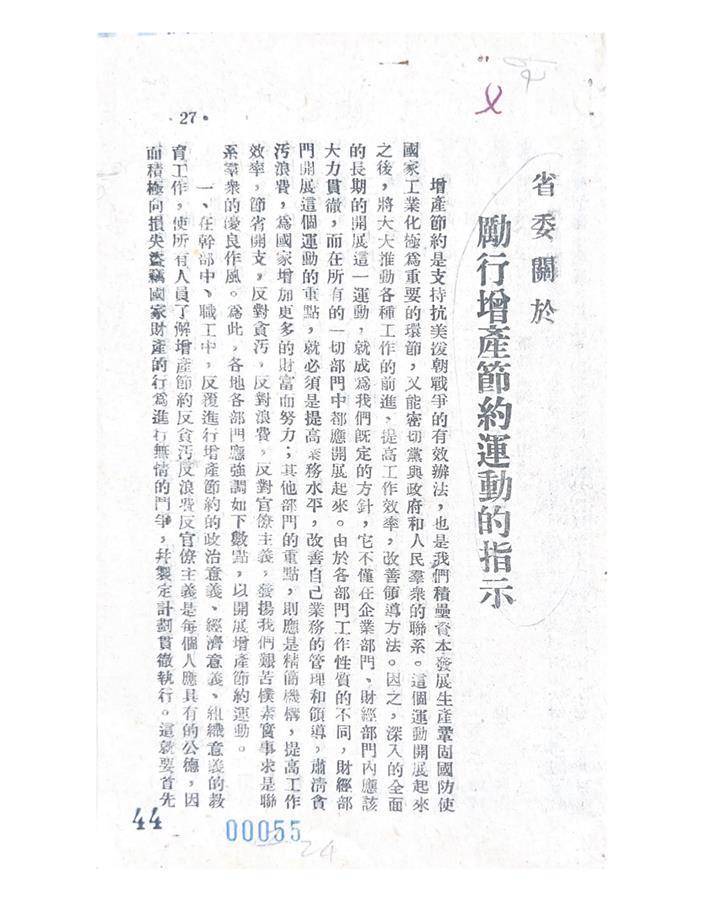 省委關於
勵行增產節約運動的指示
增產節約是支持抗美援朝戰爭的有效辦法，也是我們積壘資本發展生產鞏固國防使
國家工業化極爲重要的環節，又能密切黨與政府和人民羣衆的聯系。這個運動開展起來
之後，將大大推動各種工作的前進，提高工作效率，改善領導方法。因之，深入的全面
的長期的開展這一運動，就成爲我們旣定的方針，它不僅在企業部門、財經部門內應該
大力貫徹，而在所有的一切部門中都應開展起來。由於各部門工作性質的不同，財經部
門開展這個運動的重點，就必須是提高業務水平，改善自己業務的管理和領導，肅清貪
污浪費，爲國家增加更多的財富而努力；其他部門的重點，則應是精簡機構，提高工作
效率，節省開支，反對貪污，反對浪費，反對官僚主義，發揚我們艱苦樸素實事求是聯
系羣衆的優良作風。爲此，各地各部門應強調如下數點，以開展增產節約運動。
一、在幹部中、職工中，反覆進行增產節約的政治意義、經濟意義、組織意義的教
育工作，使所有人員了解增產節約反貪污反浪費反官僚主義是每個人應具有的公德，因
而積極向損失盜竊國家財產的行爲進行無情的鬥爭，幷製定計劃貫徹執行。這就要首先
·27·
44
00055
24